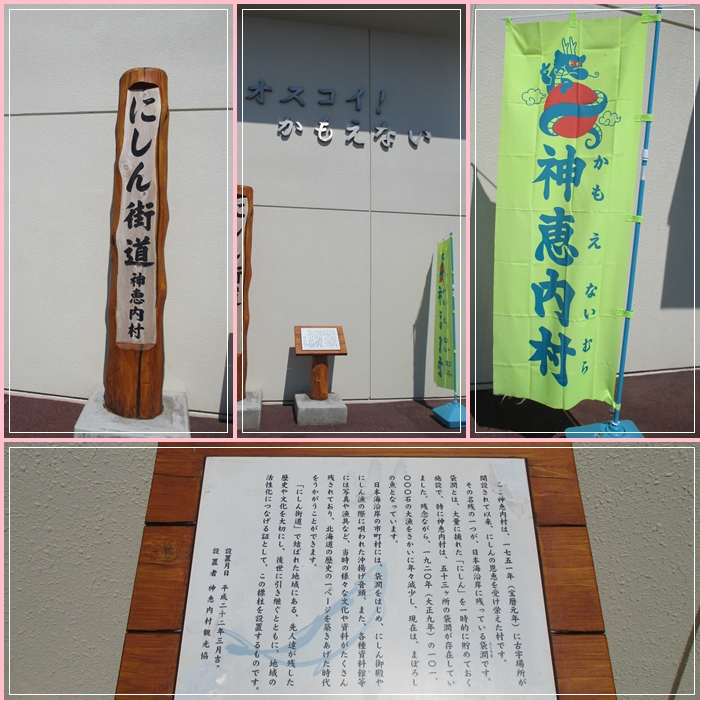 にしん街道
神恵内村
オスコイ!
かもえない
かもえないむら
神恵内村
ここ神恵内村は、一七五一年（宝暦元年）に古宇場所が
開設されて以来、にしんの恩恵を受け栄えた村です。
その名残の一つが、日本海沿岸に残っている袋澗です。
袋澗とは、大量に捕れた「にしん」を一時的に貯めておく
施設で、特に神恵内村は、五十三ヶ所の袋澗が存在してい
ました。残念ながら、一九二〇年（大正九年）の一〇一、
〇〇〇石の大漁をさかいに年々減少し、現在は、まぼろし
の魚となっています。
日本海沿岸の市町村には、袋澗をはじめ、にしん御殿や
にしん漁の際に唄われた沖揚げ音頭、また、各種資料館等
には写真や漁具など、当時の様々な文化や資料がたくさん
残されており、北海道の歴史の一ページを築きあげた時代
をうかがうことができます。
「にしん街道」で結ばれた地域にある、先人達が残した
歴史や文化を大切にし、後世に引き継ぐとともに、地域の
活性化につなげる証として、この標柱を設置するものです。
設置月日　平成二十二年三月吉。
設置者　神恵内村観光協